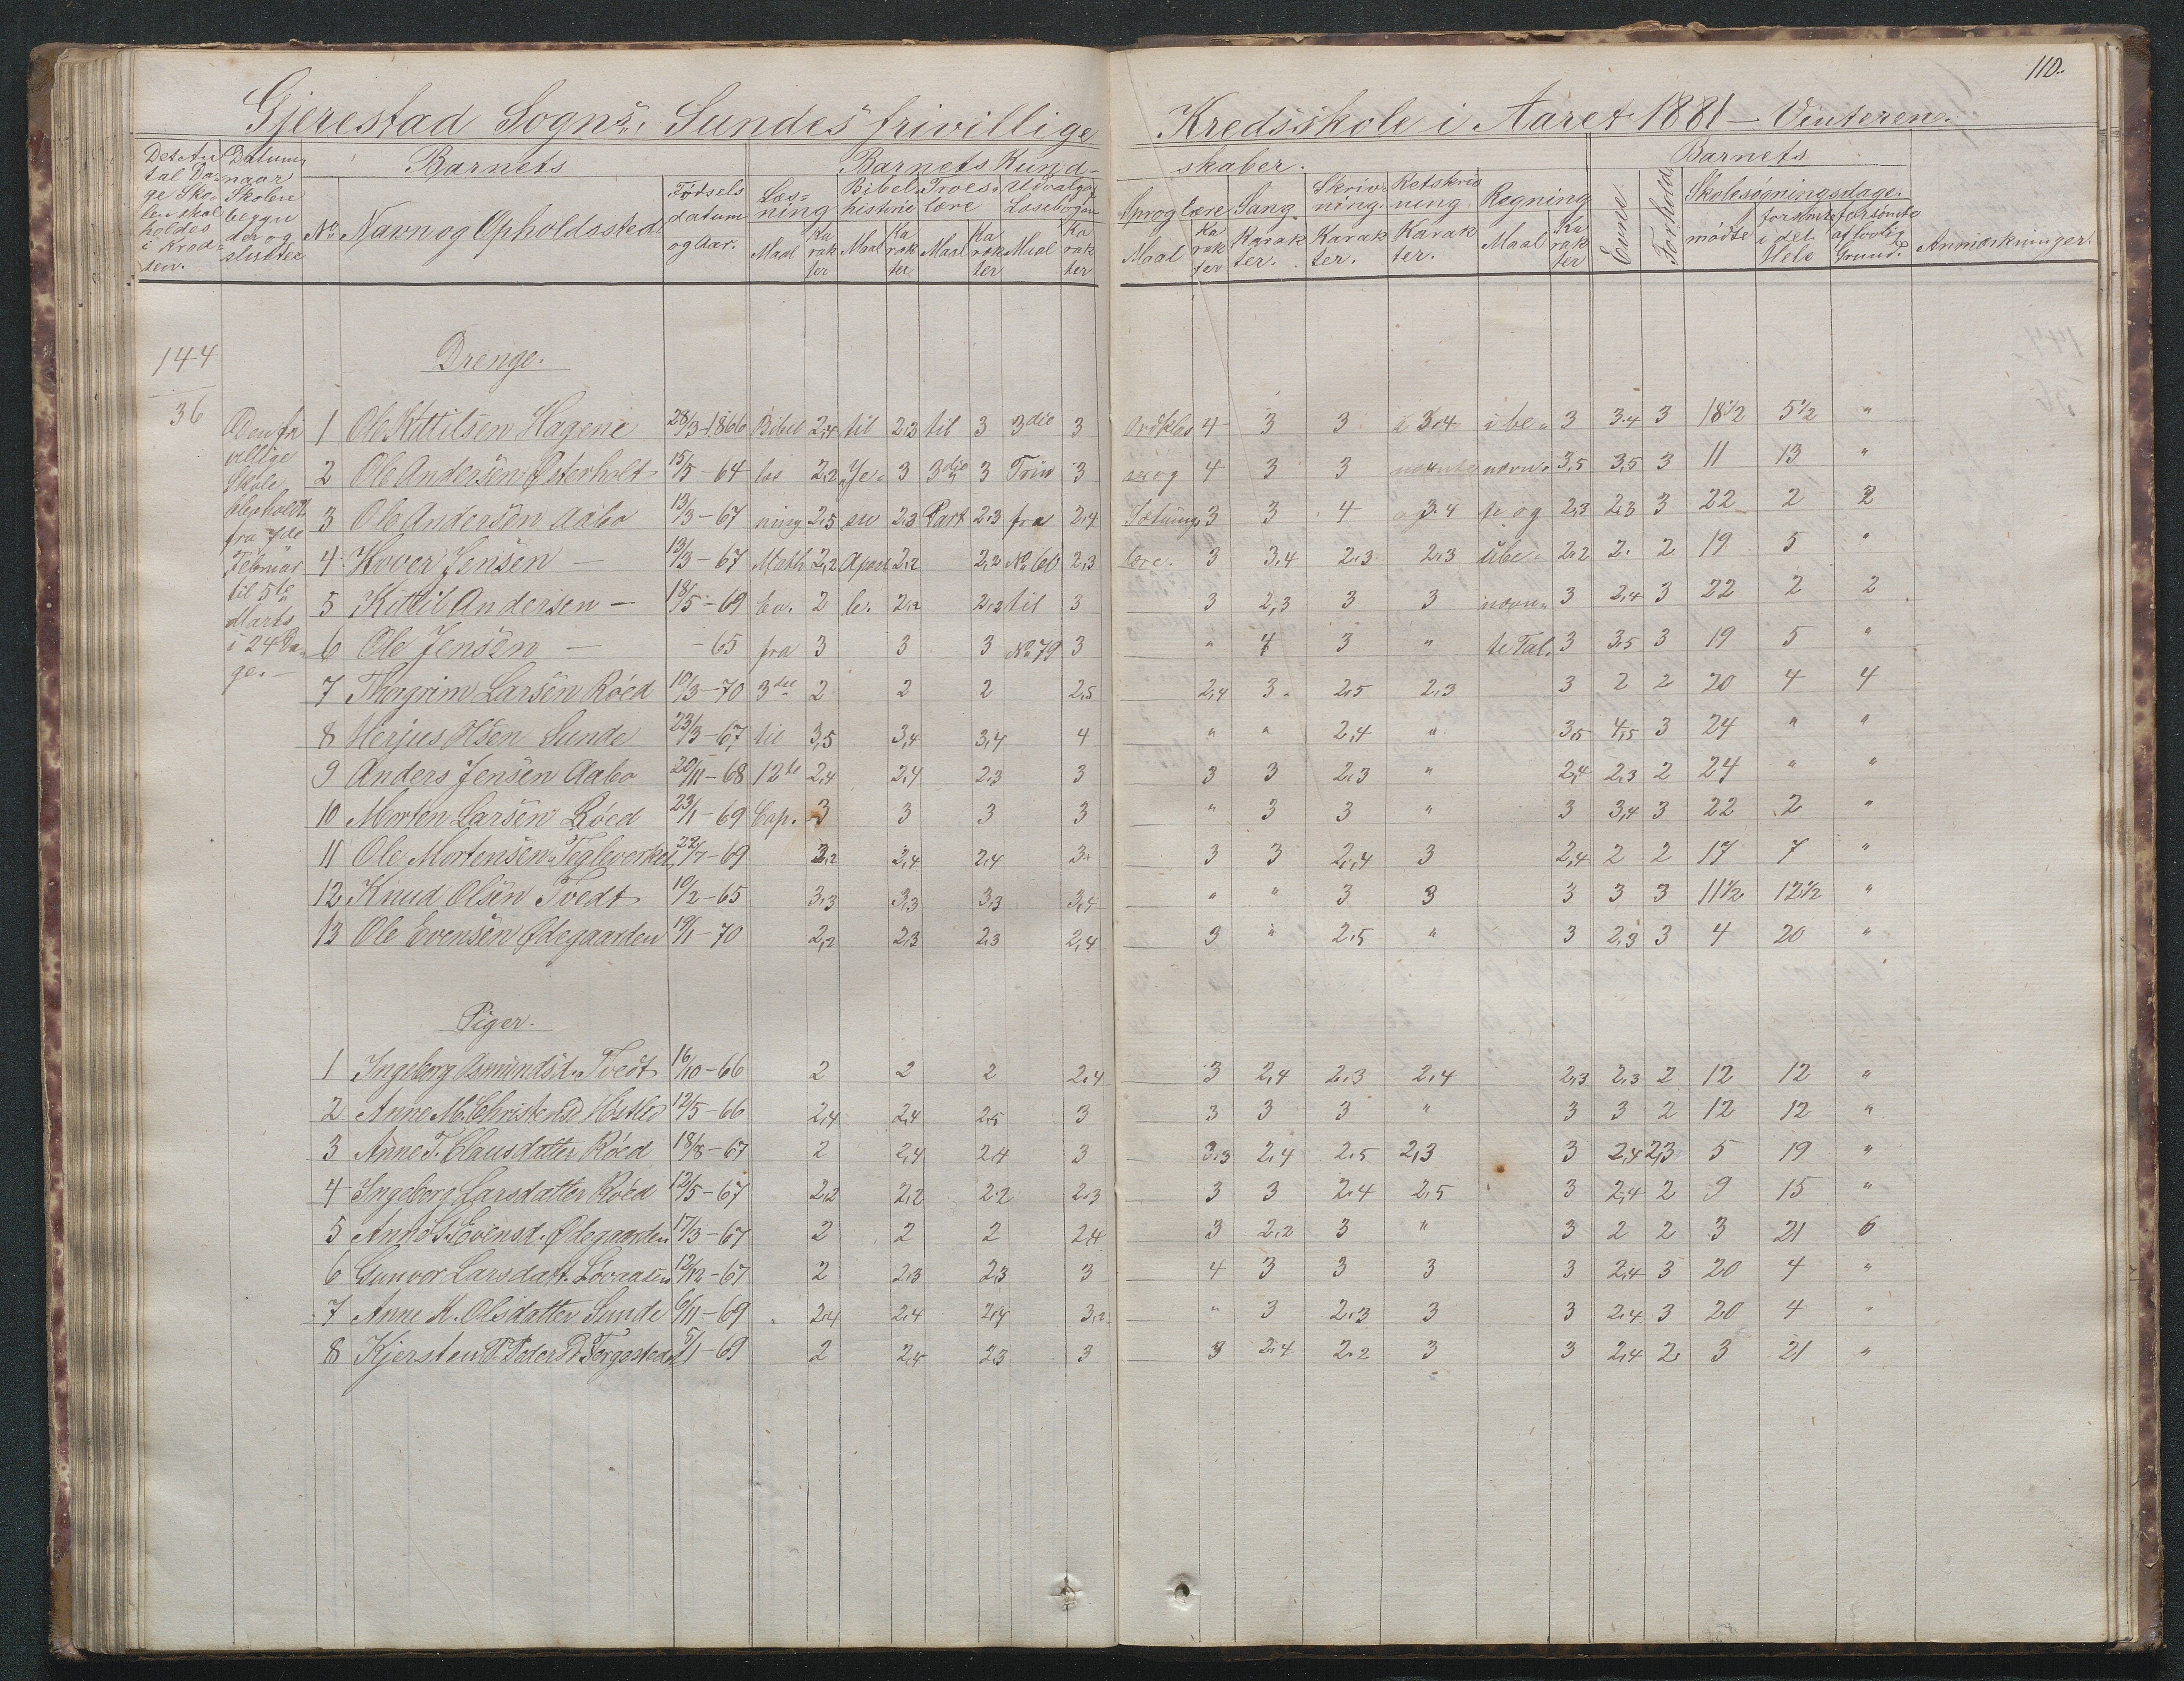 110.
Gjerestad Sogns, Sundes frivillige Kredsskole i Aaret 1881 – Vinteren.
Det Antal Dage Skolen skal holdes i Kredsen.
Datum naar Skolen begynder og slutter
Barnets
No Navn og Opholdssted
Fødselsdatum og Aar.
Barnets Kundskaber.
Læsning Maal Karakter
Bibelhistorie Maal Karakter
Troeslære Maal Karakter
Udvalg af Læsebogen Maal Karakter
Sproglære Maal Karakter
Sang Karakter.
Skrivning. Karakter.
Retskrivning Karakter.
Regning Maal Karakter
Barnets
Evne Forhold
Skolesøgningsdage.
mødte forsømte i det Hele forsømte af lovlig Grund.
Anmærkninger.
144
36
Drenge.
Den frivillige Skole blev holdt fra 7de Februar til 5te Marts i 24 Dage. –
1 Ole Kittilsen Hagene 28/3-1866 Bibel 2,4 til 2,3 til 3 3die 3 Ordklas 4 3 3 3.4 i be- 3 3.4 3 18½ 5½ "
2 Ole Andersen Østerholt 15/5-64 læs 2,2 Je- 3 3die 3 Trin 3 ser og 4 3 3 nævn- 3,5 3,5 3 11 13 "
3 Ole Andersen Aabø 13/3-67 ning 2,5 su 2,3 Part 2.3 fra 2,4 Sætnings 3 3 4 3.4 te og 2,3 2,3 3 22 2 2
4 Hover Jensen – 13/3-67 Math 2,2 Apost 2,2 2,2 No 60 2,3 lære. 3 3,4 2.3 2,3 ube- 2,2 2. 2 19 5 "
5 Kittil Andersen – 18/5-69 Ev. 2 le. 2,2 2,2 til 3 3 2,3 3 3 nævn- 3 2,4 3 22 2 2
6 Ole Jensen – -65 fra 3 3 3 No 79 3 " 4 3 " te Tal. 3 3,5 3 19 5 "
7 Thorgrim Larsen Røed 10/3-70 3die 2 2 2 2,5 2,4 3 2,5 2,3 3 2 2 20 4 4
8 Herjus Olsen Sunde 23/3-67 til 3,5 3,4 3,4 4 " " 2,4 " 3,5 4,5 3 24 " "
9 Anders Jensen Aabø 20/11-68 12te 2,4 2,4 2,3 3 3 3 2,3 " 2,4 2,3 2 24 " "
10 Morten Larsen Røed 23/1-69 Cap. 3 3 3 3 " 3 3 " 3 3,4 3 22 2 "
11 Ole Mortensen Tegleværket 22/7-69 3,2 2,4 2,4 3 3 3 2,4 3 2,4 2 2 17 7 "
12 Knud Olsen Tvedt 10/2-65 3,3 3,3 3,3 3,4 " " 3 3 3 3 3 11½ 12½ "
13 Ole Evensen Ødegaarden 19/1-70 2,2 2,3 2,3 2,4 3 " 2,5 " 3 2,3 3 4 20 "
Piger.
1 Ingeborg Asmundsd. Tvedt 16/10-66 2 2 2 2,4 3 2,4 2,3 2,4 2,3 2,3 2 12 12 "
2 Anne M. Christensd 12/5-66 2,4 2,4 2,5 3 3 3 3 " 3 3 2 12 12 "
3 Anne T. Clausdatter Røed 18/8-67 2 2,4 2,4 3 3.3 2,4 2,5 2,3 3 2,4 2,3 5 19 "
4 Ingeborg Larsdatter Røed 12/5-67 2,2 2,2 2.2 2.3 3 3 2,4 2,5 3 2,4 2 9 15 "
5 Anne S. Evensd. Ødegaarden 17/3-67 2 2 2 2,4 3 2,2 3 " 3 2 2 3 21 6
6 Gunvor Larsdatt. Løvaasen 12/12-67 2 2,3 2,3 3 4 3 3 3 3 2,4 3 20 4 "
7 Anne K. Olsdatter Sunde 6/11-69 2,4 2,4 2,4 3,2 " 3 2,3 3 3 2,4 3 20 4 "
8 Kjersten T. Peders D. 5/1-69 2 2,4 2,3 3 3 2,4 2,2 3 3 2,4 2 3 21 "